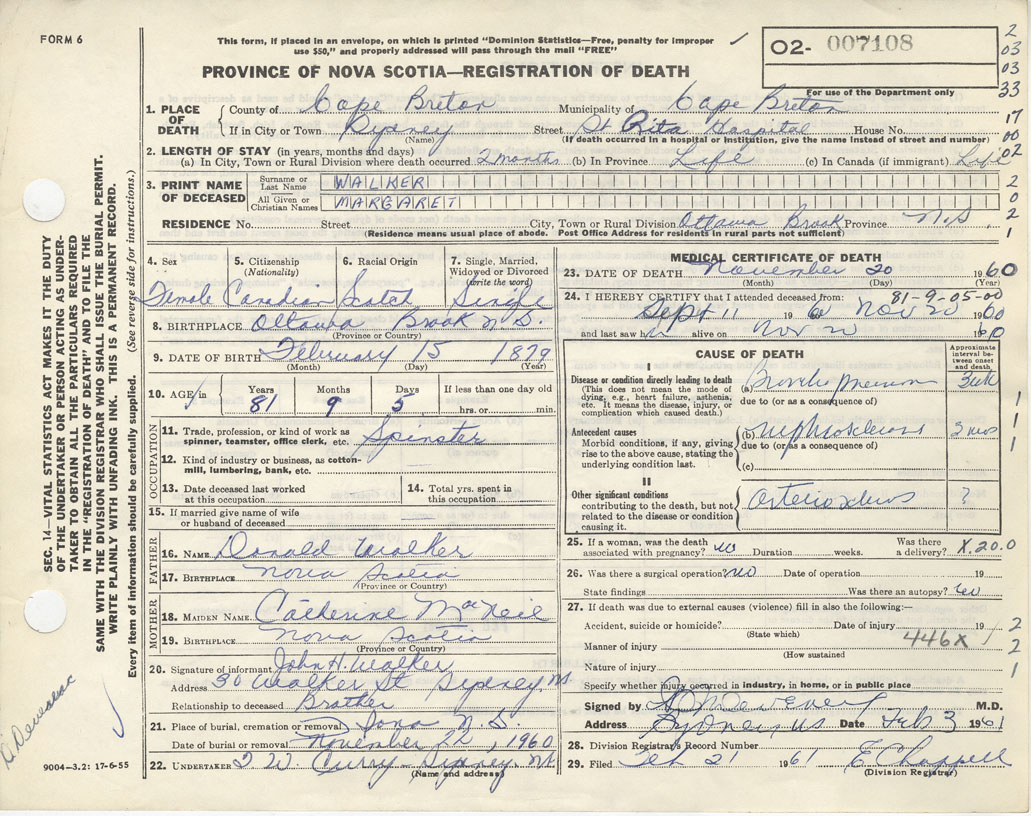 FORM 6
This form, if placed in an envelope, on which is printed "Dominion Statistics—Free, penalty for improper
use $50," and properly addressed will pass through the mail "FREE"
PROVINCE OF NOVA SCOTIA—REGISTRATION OF DEATH
02- 007108
For use of the Department only
2
03
03
33
17
00
02
2
0
2
1
1. PLACE OF DEATH
County of Cape Breton Municipality of Cape Breton
If in City or Town Sydney Street St Rita Hospital House No.
(Name) (If death occurred in a hospital or institution, give the name instead of street and number)
2. LENGTH OF STAY (in years, months and days)
(a) In City, Town or Rural Division where death occurred 2 months (b) In Province Life (c) In Canada (if immigrant) Life
3. PRINT NAME OF DECEASED
Surname or Last Name WALKER
All Given or Christian Names MARGARET
RESIDENCE No. Street City, Town or Rural Division Ottawa Brook Province N.S
(Residence means usual place of abode. Post Office Address for residents in rural parts not sufficient)
4. Sex 5. Citizenship (Nationality) 6. Racial Origin 7. Single, Married, Widowed or Divorced (write the word)
Female Canadian Scotch Single
8. BIRTHPLACE Ottawa Brook N.S.
(Province or Country)
9. DATE OF BIRTH February 15 1879
(Month) (Day) (Year)
10. AGE in Years Months Days If less than one day old
81 9 5 hrs. or min.
OCCUPATION
11. Trade, profession, or kind of work as spinner, teamster, office clerk, etc. Spinster
12. Kind of industry or business, as cotton-mill, lumbering, bank, etc.
13. Date deceased last worked at this occupation
14. Total yrs. spent in this occupation
15. If married give name of wife or husband of deceased
FATHER
16. NAME Donald Walker
17. BIRTHPLACE Nova Scotia
(Province or Country)
MOTHER
18. MAIDEN NAME Catherine MacNeil
19. BIRTHPLACE Nova Scotia
(Province or Country)
20. Signature of informant John H. Walker
Address 30 Walker St Sydney, N.S.
Relationship to deceased Brother
21. Place of burial, cremation or removal Iona N.S.
Date of burial or removal November 22, 1960
22. UNDERTAKER Curry Sydney, N.S.
(Name and address)
MEDICAL CERTIFICATE OF DEATH
23. DATE OF DEATH November 20 1960
(Month) (Day) (Year)
81-9-05-00
24. I HEREBY CERTIFY that I attended deceased from:
Sept 11 1960 Nov 20 1960
and last saw her alive on Nov 20 1960
CAUSE OF DEATH
Approximate interval between onset and death
I
Disease or condition directly leading to death
(This does not mean the mode of dying, e.g., heart failure, asthenia, etc. It means the disease, injury, or complication which caused death.)
(a) Broncho Pneumonia
due to (or as a consequence of)
Antecedent causes
Morbid conditions, if any, giving rise to the above cause, stating the underlying condition last.
(b) Nephrosclerosis 3 mos
due to (or as a consequence of)
(c)
II
Other significant conditions
contributing to the death, but not related to the disease or condition causing it.
Arteriosclerosis ?
1
1
1
25. If a woman, was the death associated with pregnancy? no Duration weeks. Was there a delivery? X.20.0
26. Was there a surgical operation? no Date of operation 19
State findings Was there an autopsy? no
27. If death was due to external causes (violence) fill in also the following:—
Accident, suicide or homicide? Date of injury 19
(State which)
446X
Manner of injury
(How sustained
Nature of injury
Specify whether injury occurred in industry, in home, or in public place
2
2
1
Signed by M.D.
Address Sydney, NS Date Feb 3 1961
28. Division Registrar's Record Number
29. Filed Feb 21 1961 E Chappell
(Division Registrar)
SEC. 14—VITAL STATISTICS ACT MAKES IT THE DUTY
OF THE UNDERTAKER OR PERSON ACTING AS UNDER-
TAKER TO OBTAIN ALL THE PARTICULARS REQUIRED
IN THE "REGISTRATION OF DEATH" AND TO FILE THE
SAME WITH THE DIVISION REGISTRAR WHO SHALL ISSUE THE BURIAL PERMIT.
WRITE PLAINLY WITH UNFADING INK. THIS IS A PERMANENT RECORD.
Every item of information should be carefully supplied. (See reverse side for instructions.)
9004—3.2: 17-6-55